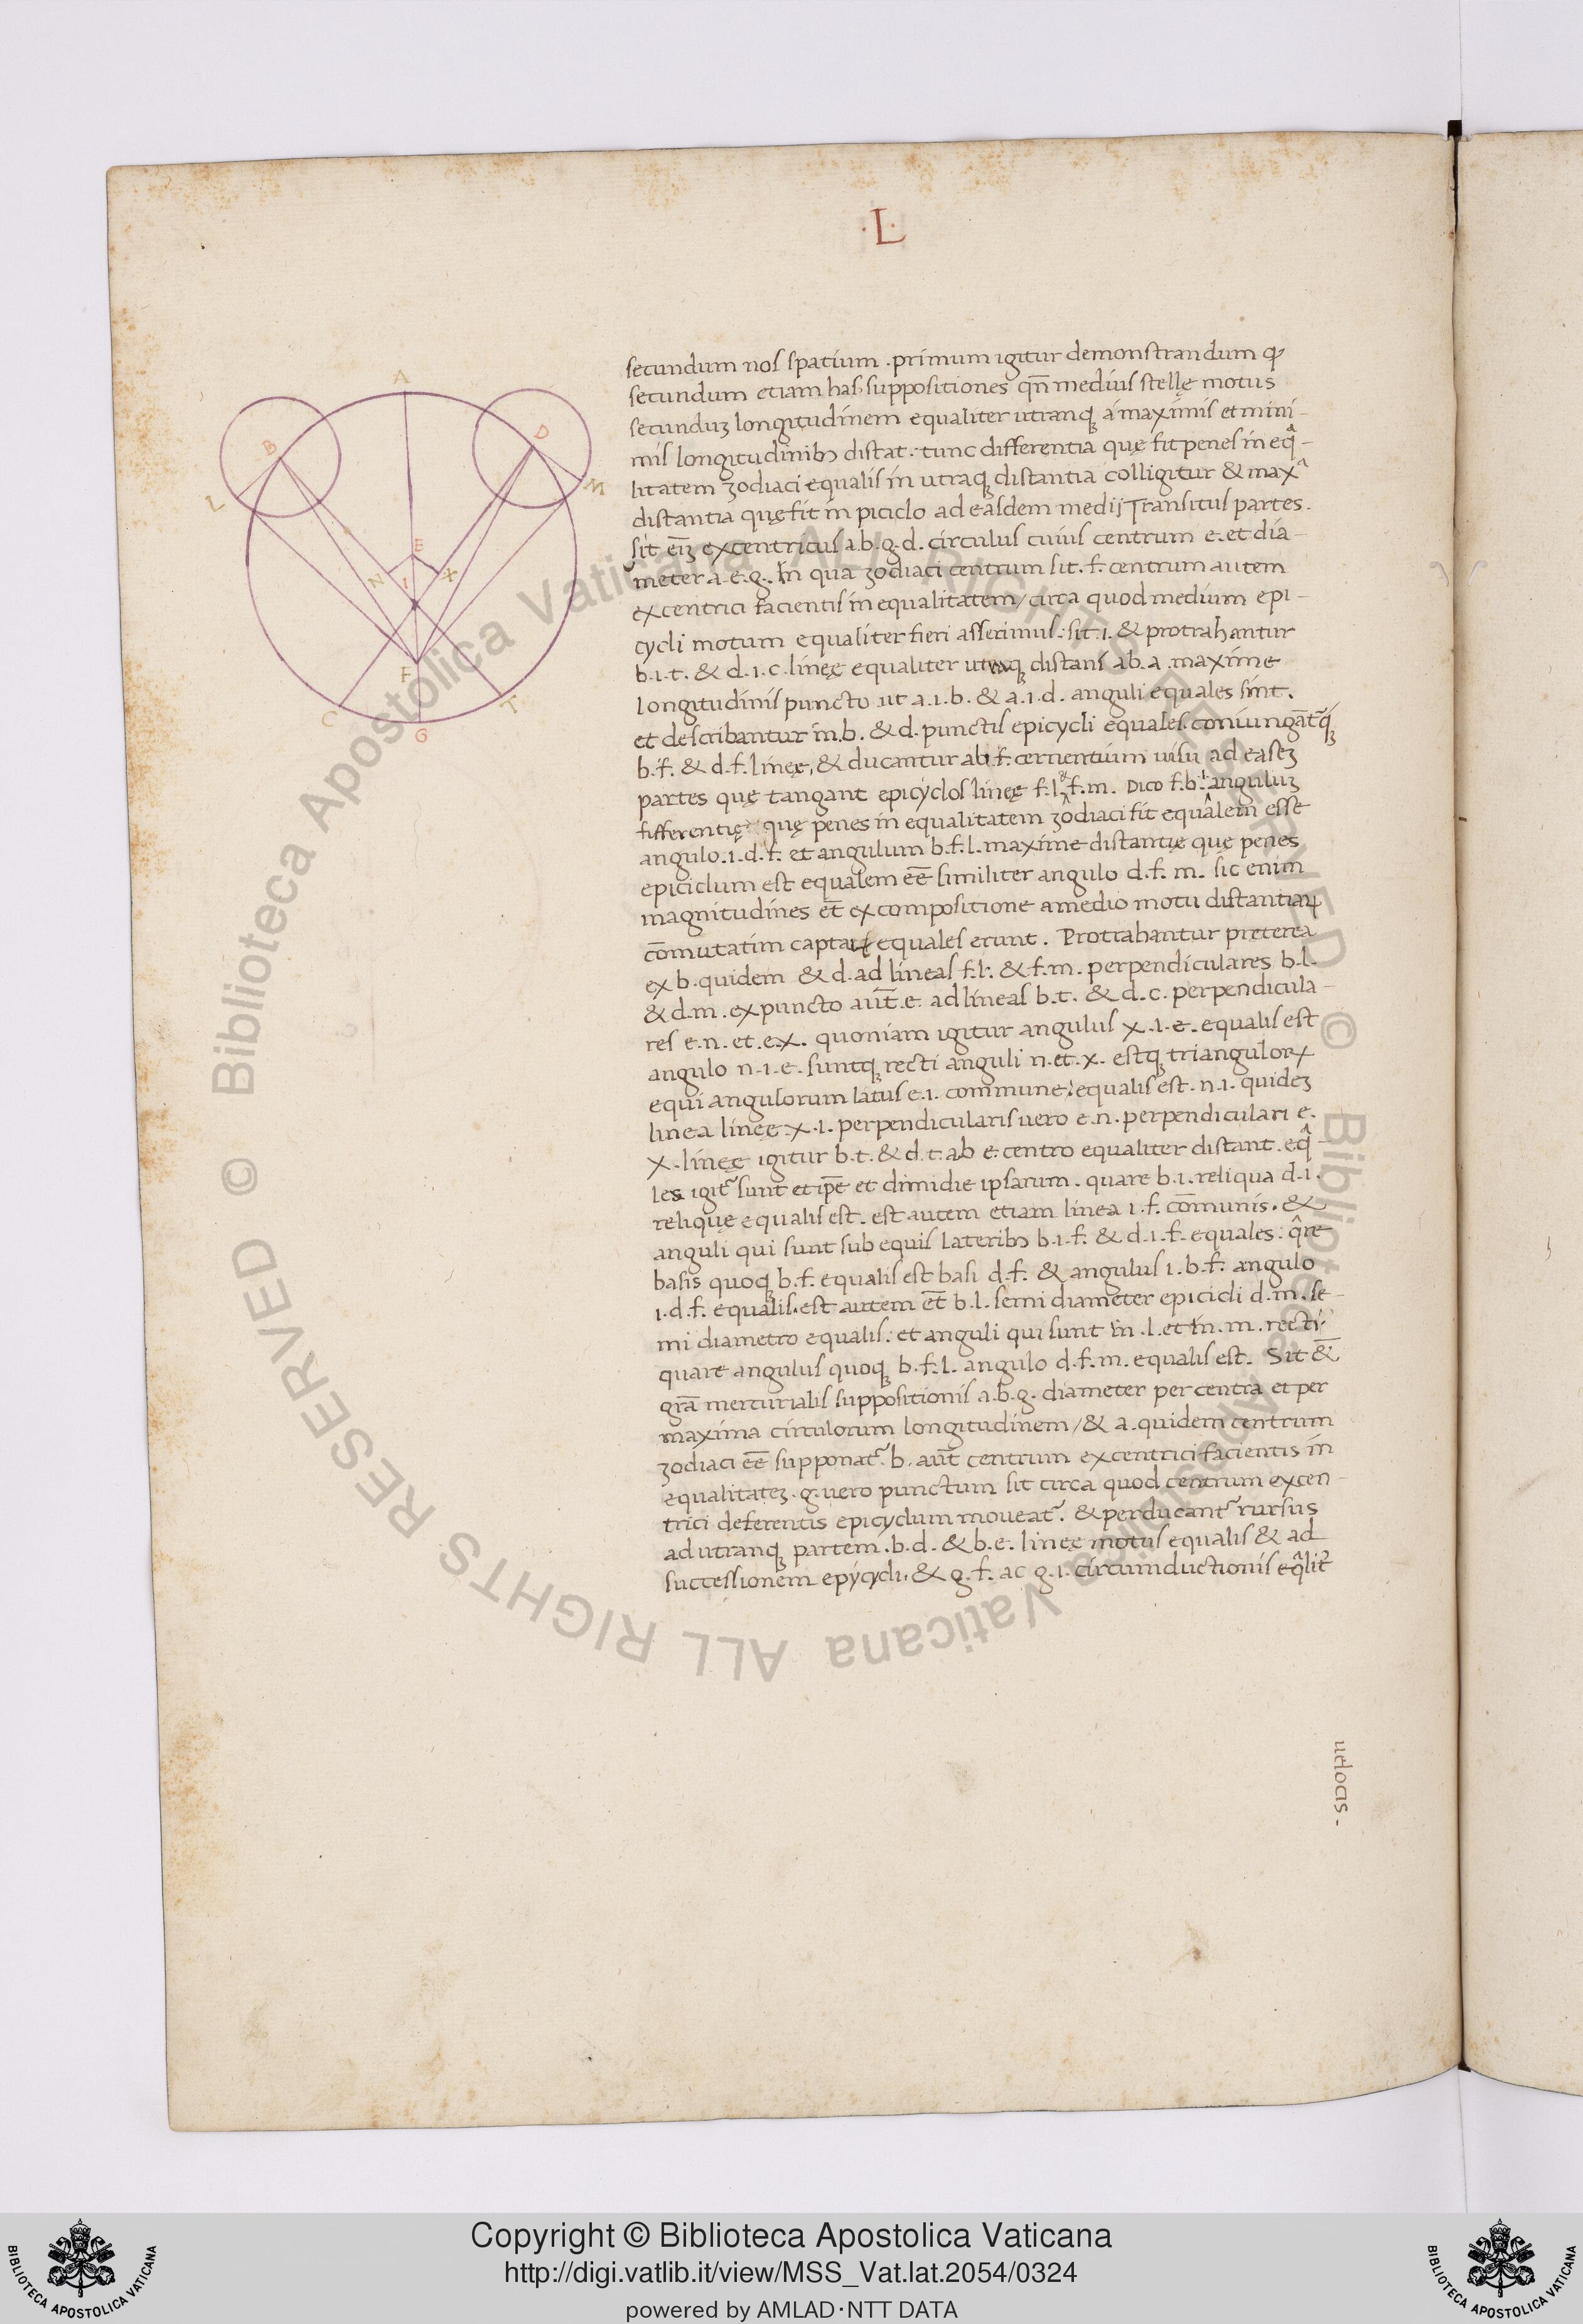 ·L·
secundum nos spatium. primum igitur demonstrandum ꝙ
secundum etiam has suppositiones qñ medius stellę motus
secunduꝫ longitudinem equaliter utranqꝫ a maximis et mini-
mis longitudinibꝫ distat. tunc differentia quę fit penes in eq̂-
litatem zodiaci equalis in utraqꝫ distantia colligitur & maxᵃ
distantia quę fit in piciclo ad easdem medij Transitus partes.
sit eīꝫ excentricus a.b.g.d. circulus cuius centrum e. et dia-
meter a.e.g. In qua zodiaci centrum sit .f. centrum autem
excentrici facientis in equalitatem / circa quod medium epi-
cycli motum equaliter fieri asserimus: sit .i. & protrahantur
b.i.t. & d.i.c. lineę equaliter utraqꝫ distans ab .a. maxime
longitudinis puncto ut a.i.b. & a.i.d. anguli equales sint.
et describantur in .b. & d. punctis epicycli equales. coniungāt᷑qꝫ
b.f. & d.f. lineę, & ducantur ab .f. cernentium uisu ad easeꝫ
partes quę tangant epicyclos lineę f.l. & f.m. Dico f.b.i. anguluꝫ
fifferentię quę penes in equalitatem zodiaci fit equalem esse
angulo .i.d.f. et angulum b.f.l. maxime distantię quę penes
epiciclum est equalem eē similiter angulo d.f.m. sic enim
magnitudines eī̄ ex compositione a medio motu distantiaꝝ
cōmutatim captaę equales erunt. Protrahantur preterea
ex b. quidem & d. ad lineas f.l. & f.m. perpendiculares b.l.
& d.m. ex puncto aūt .e. ad lineas b.t. & d.c. perpendicula-
res e.n. et .e.x. quoniam igitur angulus x.i.e. equalis est
angulo n.i.e. suntqꝫ recti anguli n. et .x. estqꝫ trianguloꝝ
equi angulorum latus e.i. commune: equalis est .n.i. quideꝫ
linea lineę x.i. perpendicularis uero e.n. perpendiculari e.
x. lineę igitur b.t. & d.t. ab e. centro equaliter distant. eq̂-
les igit᷑ sunt et ip̄e et dimidie ipsarum. quare b.i. reliqua d.i.
relique equalis est. est autem etiam linea i.f. cōmunis. &
anguli qui sunt sub equis lateribꝫ b.i.f. & d.i.f. equales: q̂re
basis quoqꝫ b.f. equalis est basi d.f. & angulus i.b.f. angulo
i.d.f. equalis. est autem et̄ b.l. semi diameter epicicli d.m. se-
mi diametro equalis: et anguli qui sunt in .l. et in .m. recti:
quare angulus quoqꝫ b.f.l. angulo d.f.m. equalis est. Sit &̄
gr̄a mercurialis suppositionis a.b.g. diameter per centra et per
maxima circulorum longitudinem / & a. quidem centrum
zodiaci eē supponat᷑. b. aūt centrum excentrici facientis in
equalitateꝫ. g. uero punctum sit circa quod centrum excen-
trici deferentis epicyclum moueat᷑. & perducant᷑ rursus
ad utranqꝫ partem .b.d. & b.e. lineę motus equalis & ad
successionem epycycli, & g.f. ac g.i. circumductionis eq̂lit᷑
uelocis-
A
B
D
L
M
E
N
I
X
F
C
T
G
© Biblioteca Apostolica Vaticana ALL RIGHTS RESERVED © Biblioteca Apostolica Vaticana ALL RIGHTS RESERVED
Copyright © Biblioteca Apostolica Vaticana
http://digi.vatlib.it/view/MSS_Vat.lat.2054/0324
powered by AMLAD·NTT DATA
BIBLIOTECA APOSTOLICA VATICANA
BIBLIOTECA APOSTOLICA VATICANA